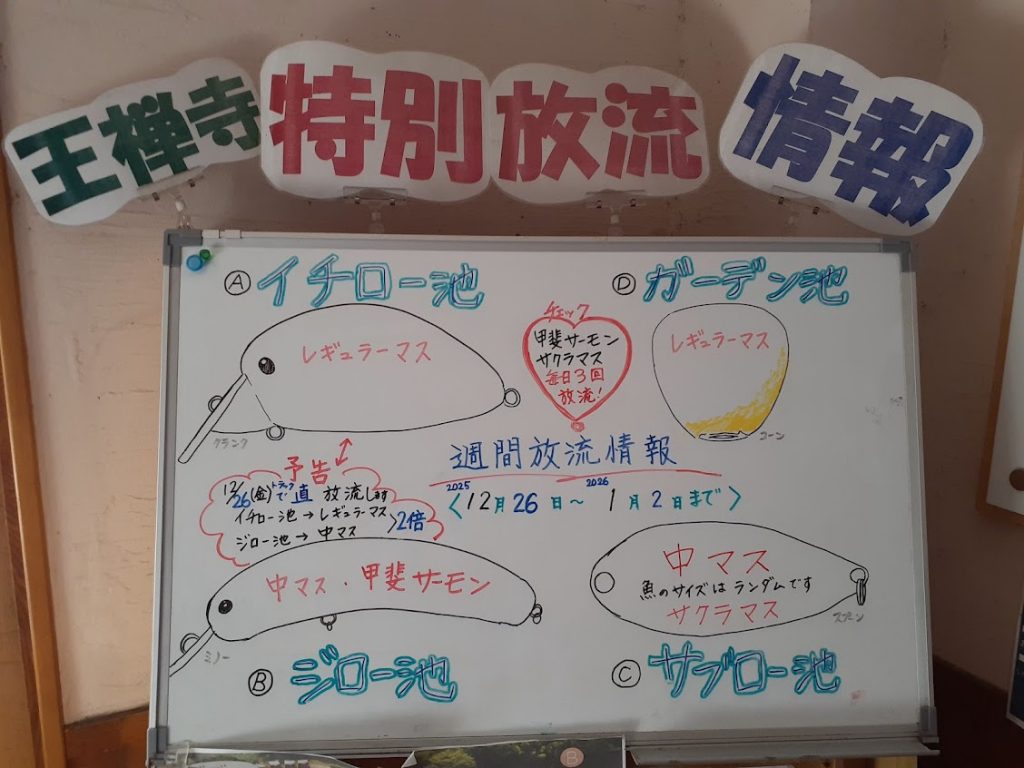 王禅寺 特別放流 情報
Ⓐ イチロー池
レギュラーマス
クランク
チェック
甲斐サーモン
サクラマス
毎日3回
放流!
Ⓓ ガーデン池
レギュラーマス
コーン
予告
12/26(金)トラックで直放流します
イチロー池→レギュラーマス
ジロー池→中マス
2倍
週間放流情報
2025 2026
〈12月26日~1月2日まで〉
中マス・甲斐サーモン
ミノー
Ⓑ ジロー池
中マス
魚のサイズはランダムです
サクラマス
スプーン
Ⓒ サブロー池
B